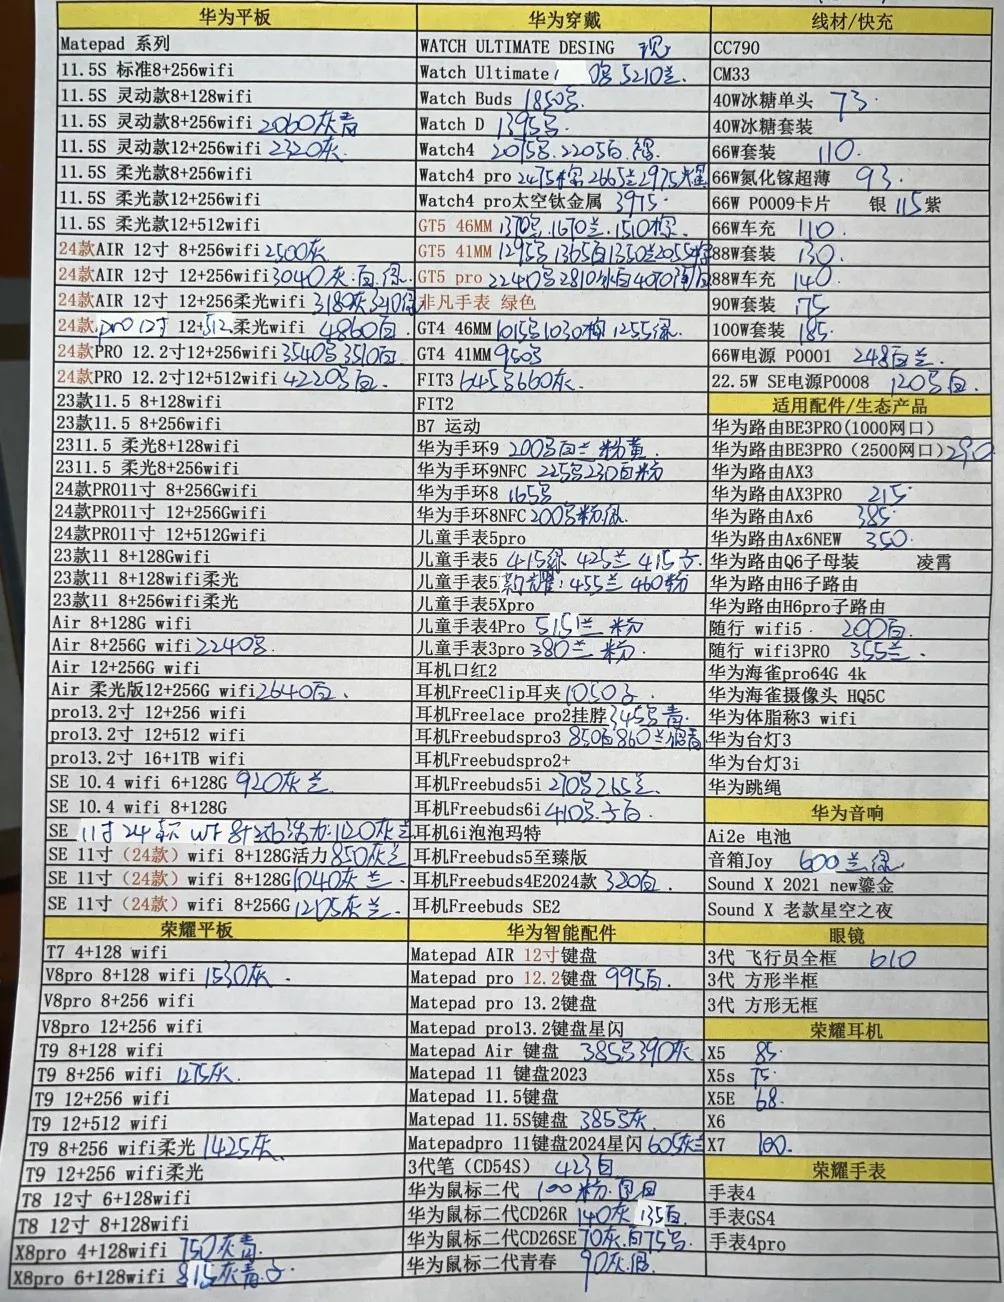 华为平板
Matepad 系列
11.5S 标准8+256wifi
11.5S 灵动款8+128wifi
11.5S 灵动款8+256wifi 2060灰青
11.5S 灵动款12+256wifi 2320灰.
11.5S 柔光款8+256wifi
11.5S 柔光款12+256wifi
11.5S 柔光款12+512wifi
24款AIR 12寸 8+256wifi 2500灰
24款AIR 12寸 12+256wifi 3040灰.白.绿
24款AIR 12寸 12+256柔光wifi 3180灰3210绿
24款pro 12寸 12+512柔光wifi 4860白
24款PRO 12.2寸12+256wifi 3540号3510白
24款PRO 12.2寸12+512wifi 4220号白.
23款11.5 8+128wifi
23款11.5 8+256wifi
2311.5 柔光8+128wifi
2311.5 柔光8+256wifi
24款PRO11寸 8+256Gwifi
24款PRO11寸 12+256Gwifi
24款PRO11寸 12+512Gwifi
23款11 8+128Gwifi
23款11 8+128wifi柔光
23款11 8+256wifi柔光
Air 8+128G wifi
Air 8+256G wifi 2240号.
Air 12+256G wifi
Air 柔光版12+256G wifi 2640白.
pro13.2寸 12+256 wifi
pro13.2寸 12+512 wifi
pro13.2寸 16+1TB wifi
SE 10.4 wifi 6+128G 920灰 兰.
SE 10.4 wifi 8+128G
SE 11寸24款 WF 8+256活力.1120灰兰
SE 11寸（24款）wifi 8+128G活力 850灰兰
SE 11寸（24款）wifi 8+128G 1040灰 兰.
SE 11寸（24款）wifi 8+256G 1205灰 兰.
荣耀平板
T7 4+128 wifi
V8pro 8+128 wifi 1530灰.
V8pro 8+256 wifi
V8pro 12+256 wifi
T9 8+128 wifi
T9 8+256 wifi 1275灰.
T9 12+256 wifi
T9 12+512 wifi
T9 8+256 wifi柔光 1425灰
T9 12+256 wifi柔光
T8 12寸 6+128wifi
T8 12寸 8+128wifi
X8pro 4+128wifi 750灰青.
X8pro 6+128wifi 815灰青.
华为穿戴
WATCH ULTIMATE DESING 现
Watch Ultimate 号 5210兰.
Watch Buds 1850号
Watch D 1395号
Watch4 2075号.2205白.
Watch4 pro 2475棕2665兰2975
Watch4 pro太空钛金属 3975.
GT5 46MM 1370号.1670兰.1510棕.
GT5 41MM 1295号.1365白1350兰2055
GT5 pro 2240号2810 白4070
非凡手表 绿色
GT4 46MM 1015号1030棕 1255绿.
GT4 41MM 950号
FIT3 645号660灰.
FIT2
B7 运动
华为手环9 200号白兰 粉黄
华为手环9NFC 225号230白粉
华为手环8 165号
华为手环8NFC 200号粉绿.
儿童手表5pro
儿童手表5 415绿 425兰 415
儿童手表5 新耀:455兰 460粉
儿童手表5Xpro
儿童手表4Pro 515兰 粉
儿童手表3pro 380兰 粉.
耳机口红2
耳机FreeClip耳夹 1050号.
耳机Freelace pro2挂脖 345号 青.
耳机Freebudspro3 850白860兰银青
耳机Freebudspro2+
耳机Freebuds5i 270号265兰
耳机Freebuds6i 410号. 白.
耳机6i泡泡玛特
耳机Freebuds5至臻版
耳机Freebuds4E2024款 320白.
耳机Freebuds SE2
华为智能配件
Matepad AIR 12寸键盘
Matepad pro 12.2键盘 995白.
Matepad pro 13.2键盘
Matepad pro13.2键盘星闪
Matepad Air 键盘 385号390灰.
Matepad 11 键盘2023
Matepad 11.5键盘
Matepad 11.5S键盘 385号灰.
Matepadpro 11键盘2024星闪 605灰兰
3代笔（CD54S） 423白
华为鼠标二代 100 粉.
华为鼠标二代CD26R 140灰 135白.
华为鼠标二代CD26SE 70灰.白75号.
华为鼠标二代青春 90灰.银.
线材/快充
CC790
CM33
40W冰糖单头 73.
40W冰糖套装
66W套装 110.
66W氮化镓超薄 93.
66W P0009卡片 银 115紫
66W车充 110
88W套装 130.
88W车充 140
90W套装 175
100W套装 185.
66W电源 P0001 248白兰.
22.5W SE电源P0008 120号白.
适用配件/生态产品
华为路由BE3PRO(1000网口)
华为路由BE3PRO（2500网口）290
华为路由AX3
华为路由AX3PRO 215.
华为路由Ax6 385.
华为路由Ax6NEW 350.
华为路由Q6子母装 凌霄
华为路由H6子路由
华为路由H6pro子路由
随行 wifi5. 200白
随行 wifi3PRO 355兰.
华为海雀pro64G 4k
华为海雀摄像头 HQ5C
华为体脂称3 wifi
华为台灯3
华为台灯3i
华为跳绳
华为音响
Ai2e 电池
音箱Joy 600兰.绿
Sound X 2021 new鎏金
Sound X 老款星空之夜
眼镜
3代 飞行员全框 610
3代 方形半框
3代 方形无框
荣耀耳机
X5 85.
X5s 75.
X5E 68.
X6
X7 100.
荣耀手表
手表4
手表GS4
手表4pro